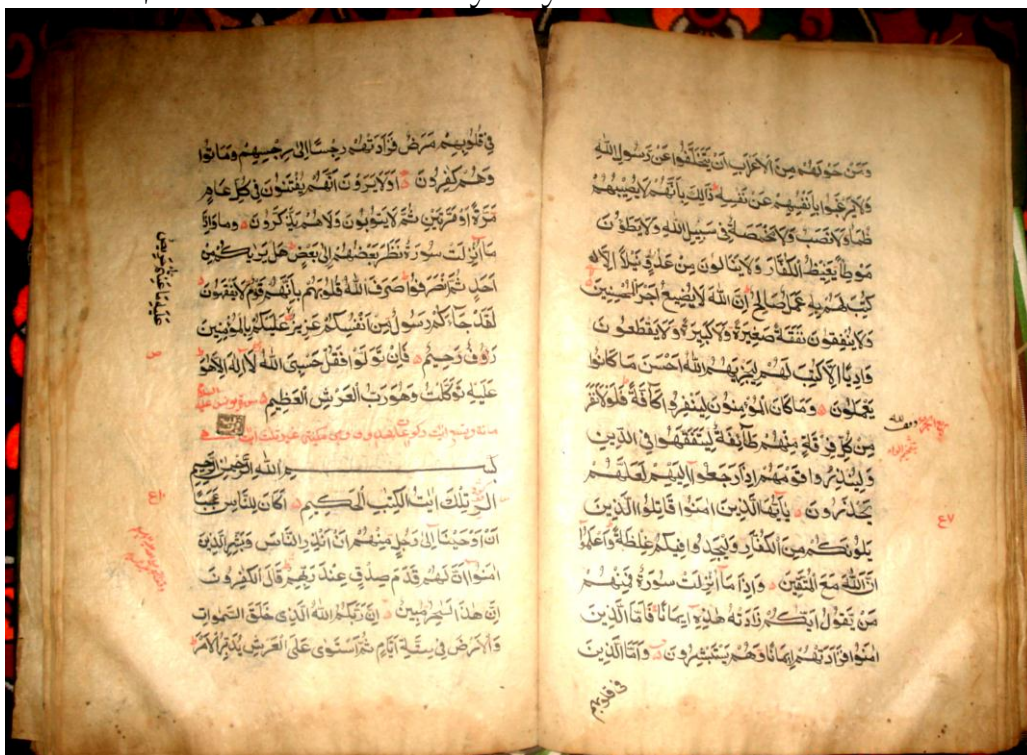 ومن حولهم من الاعراب ان يتخلفوا عن رسول الله
ولا يرغبوا بانفسهم عن نفسه ذالك بانهم لا يصيبهم
ظما ولا نصب ولا مخمصة في سبيل الله ولا يطؤن
موطأ يغيظ الكفار ولا ينالون من عدو نيلا الا
كتب لهم به عمل صالح ان الله لا يضيع اجر المحسنين
ولا ينفقون نفقة صغيرة ولا كبيرة ولا يقطعون
واديا الا كتب لهم ليجزيهم الله احسن ما كانوا
يعملون وما كان المؤمنون لينفروا كافة فلولا نفر
من كل فرقة منهم طائفة ليتفقهوا في الدين
ولينذروا قومهم اذا رجعوا اليهم لعلهم
يحذرون يا ايها الذين امنوا قاتلوا الذين
يلونكم من الكفار وليجدوا فيكم غلظة واعلموا
ان الله مع المتقين واذا ما انزلت سورة فمنهم
من يقول ايكم زادته هذه ايمانا فاما الذين
امنوا فزادتهم ايمانا وهم يستبشرون واما الذين
في قلوبهم
في قلوبهم مرض فزادتهم رجسا الى رجسهم وماتوا
وهم كفرون اولا يرون انهم يفتنون في كل عام
مرة او مرتين ثم لا يتوبون ولا هم يذكرون واذا
ما انزلت سورة نظر بعضهم الى بعض هل يريكم من
احد ثم انصرفوا صرف الله قلوبهم بانهم قوم لا يفقهون
لقد جاءكم رسول من انفسكم عزيز عليكم بالمؤمنين
رؤف رحيم فان تولوا فقل حسبي الله لا اله الا هو
عليه توكلت وهو رب العرش العظيم
بسم الله الرحمن الرحيم
الر تلك ايت الكتب الحكيم اكان للناس عجبا
ان اوحينا الى رجل منهم ان انذر الناس وبشر الذين
امنوا ان لهم قدم صدق عند ربهم قال الكفرون
ان هذا لسحر مبين ان ربكم الله الذي خلق السموات
والارض في ستة ايام ثم استوى على العرش يدبر الامر